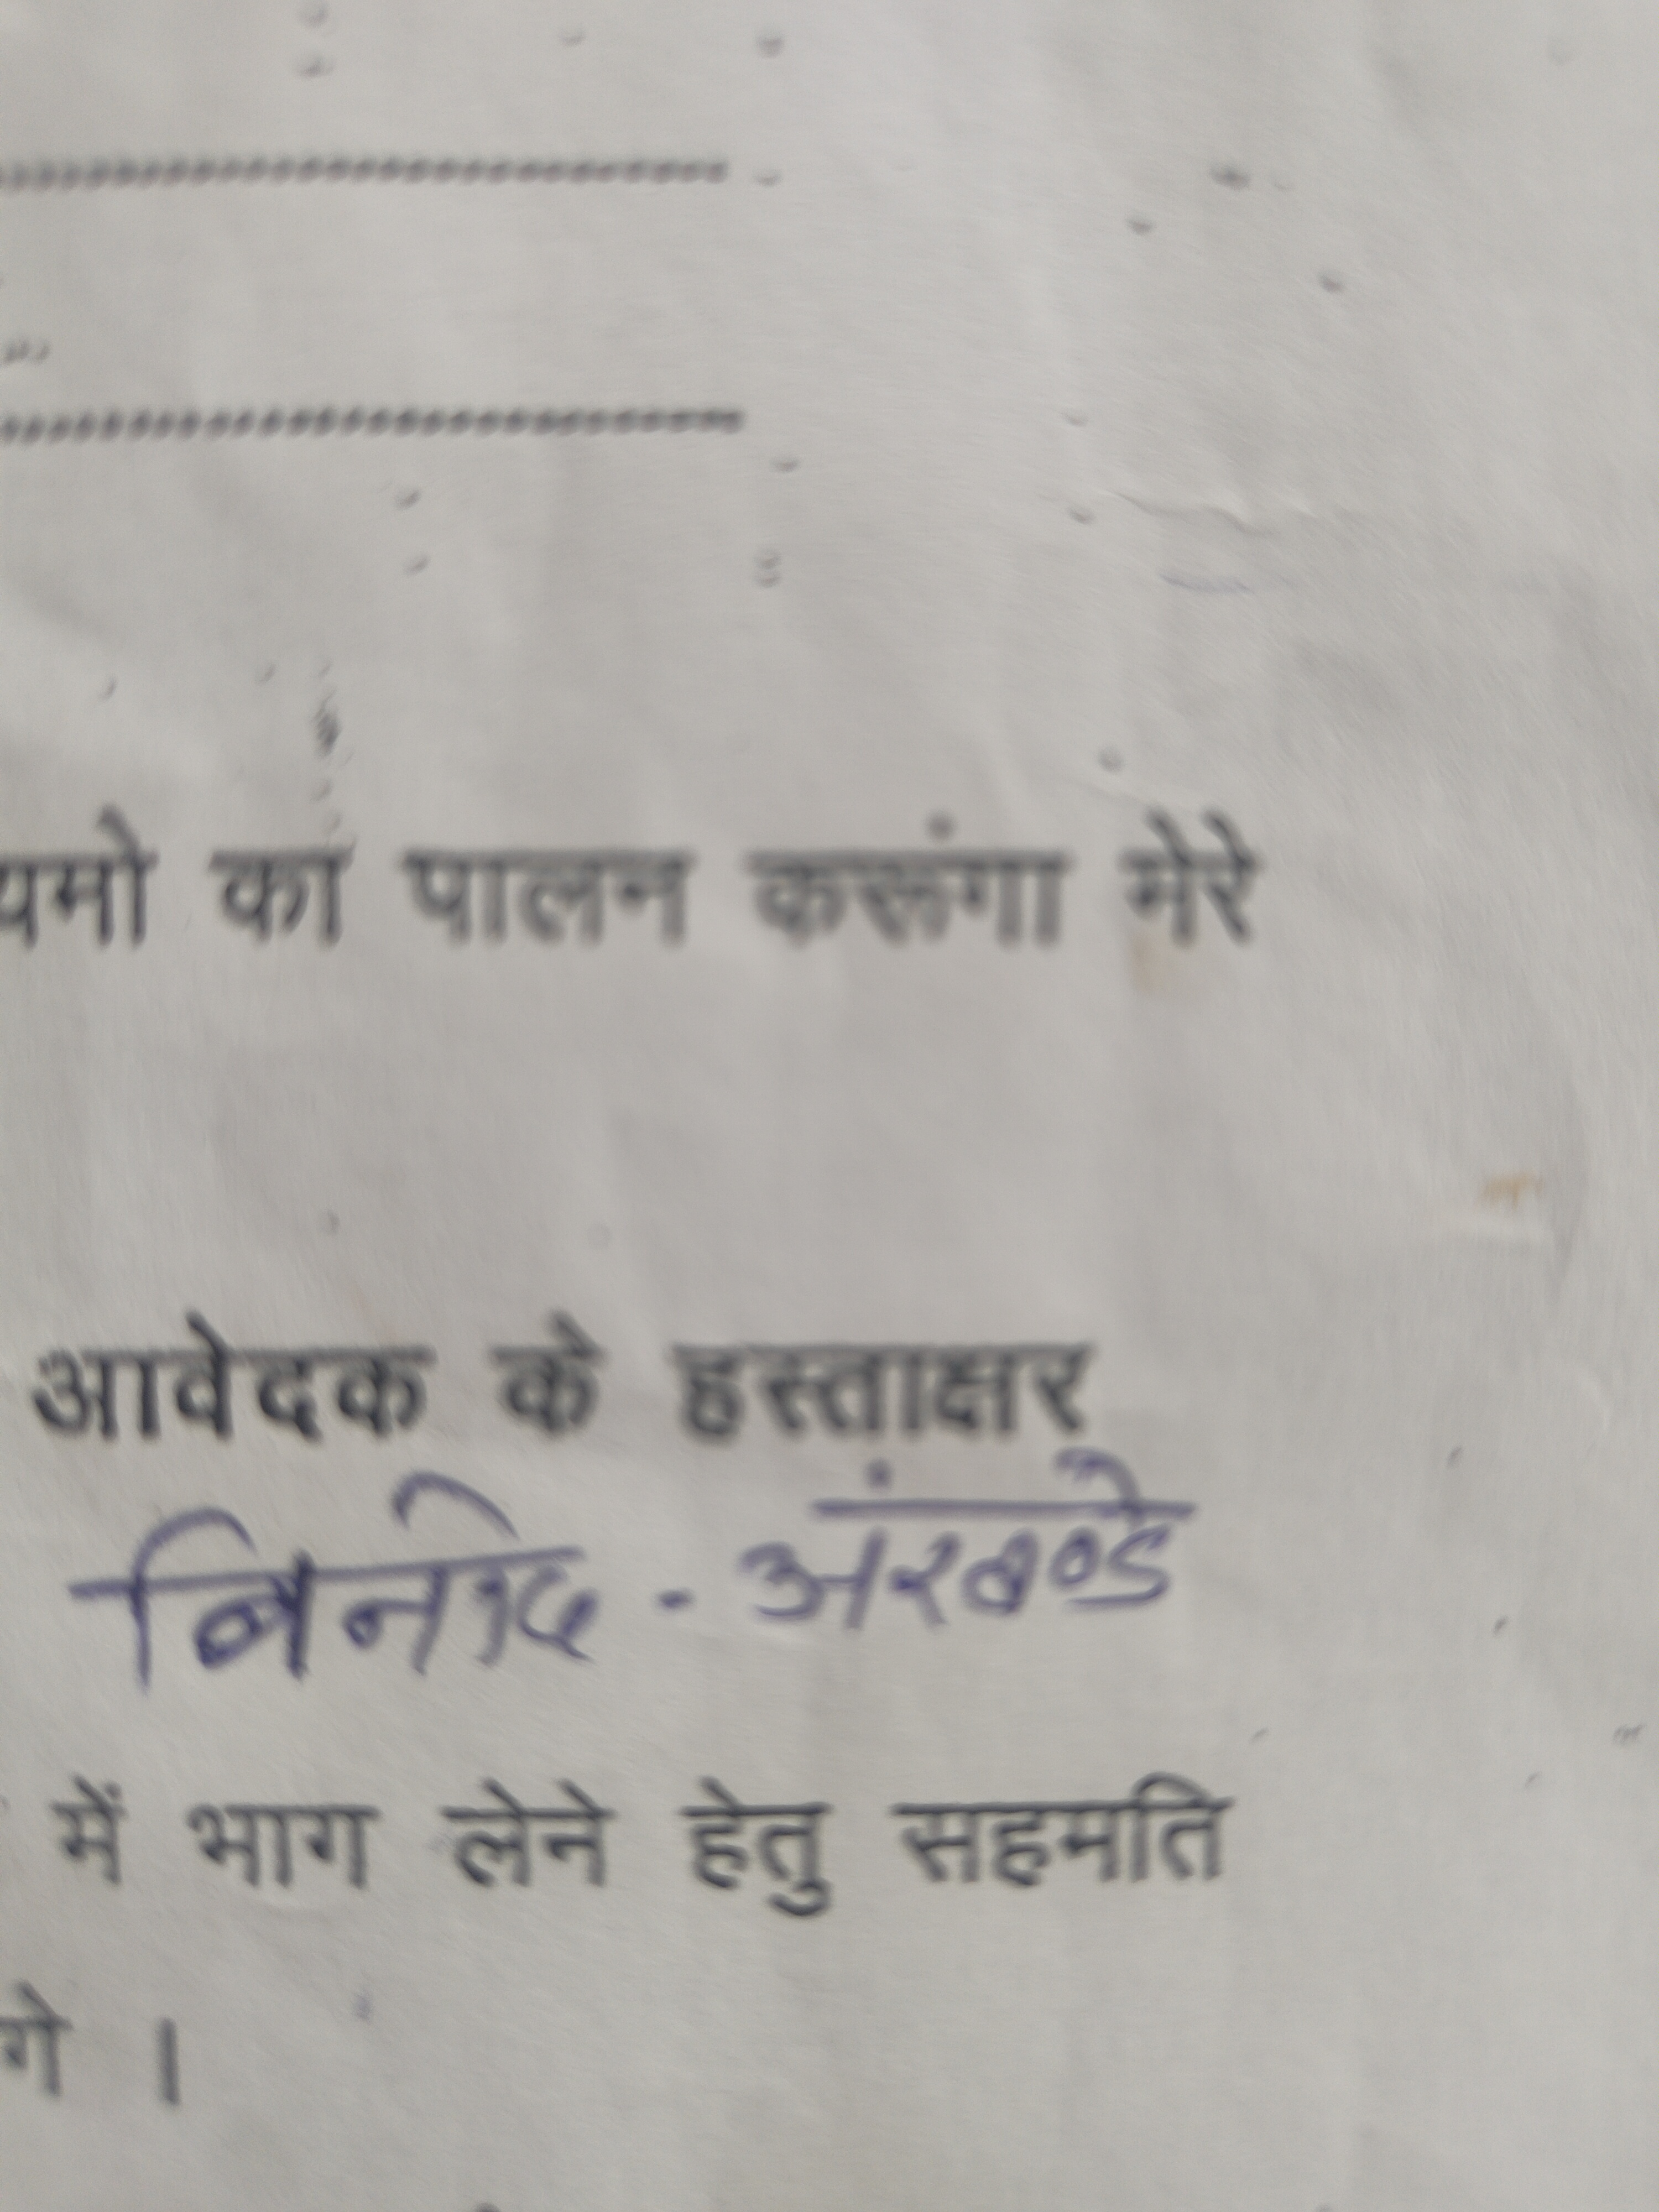 यमो का पालन करूंगा मेरे
आवेदक के हस्ताक्षर
बिनोद - अंरखण्डे
में भाग लेने हेतु सहमति
गे ।